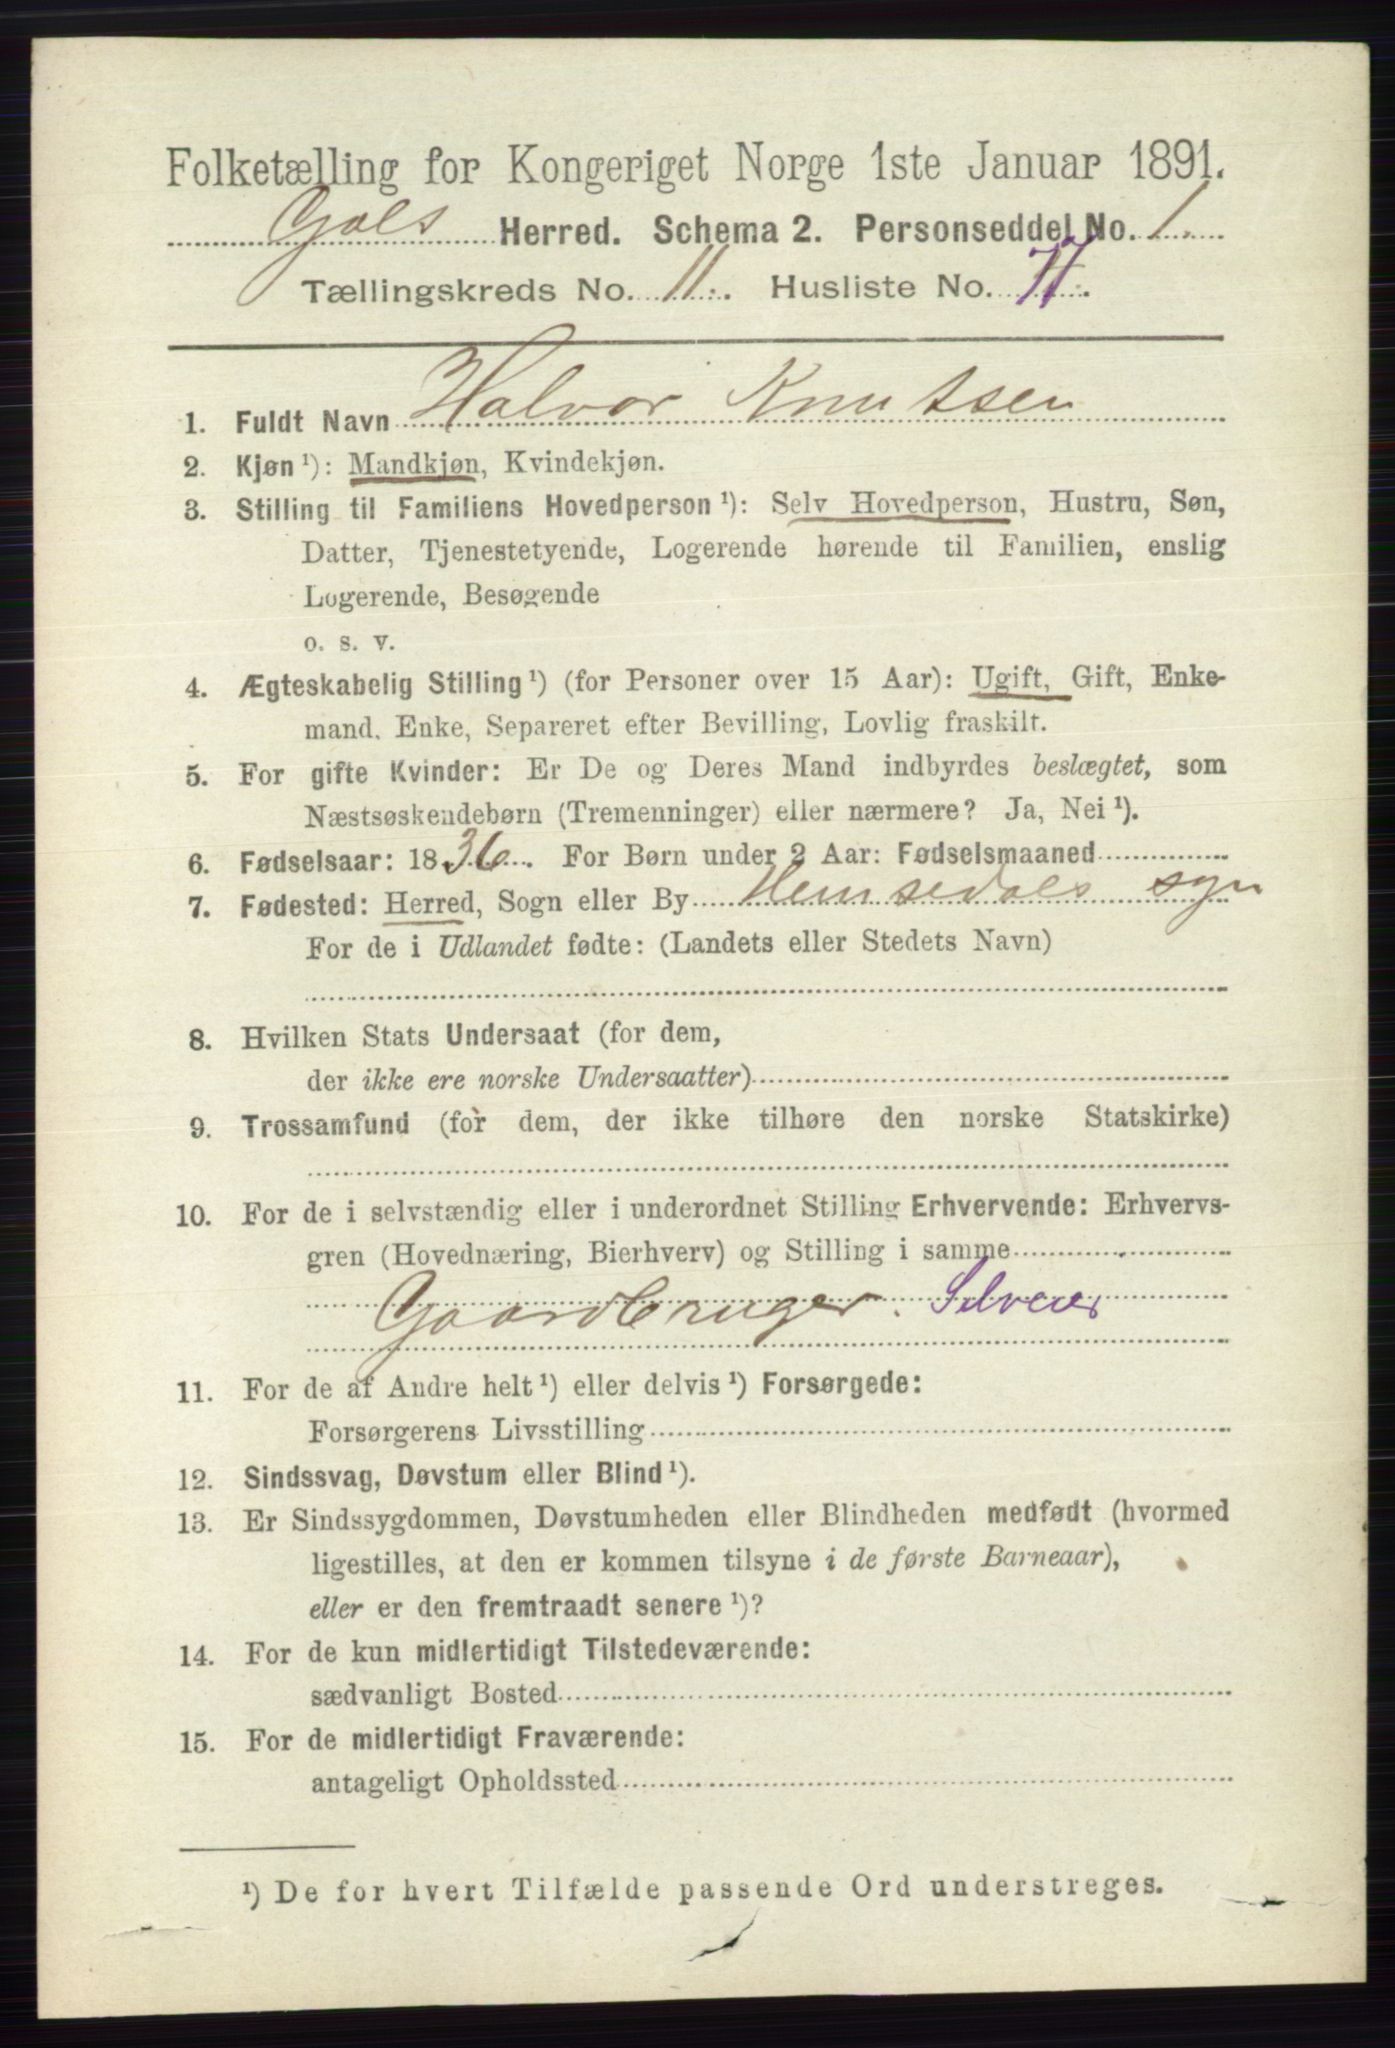 Folketælling for Kongeriget Norge 1ste Januar 1891.
Gols Herred. Schema 2. Personseddel No. 1.
Tællingskreds No. 11. Husliste No. 77.
1. Fuldt Navn Halvor Knutsen
2. Kjøn ¹): Mandkjøn, Kvindekjøn.
3. Stilling til Familiens Hovedperson ¹): Selv Hovedperson, Hustru, Søn,
Datter, Tjenestetyende, Logerende hørende til Familien, enslig
Logerende, Besøgende
o. s. v.
4. Ægteskabelig Stilling ¹) (for Personer over 15 Aar): Ugift, Gift, Enke-
mand, Enke, Separeret efter Bevilling, Lovlig fraskilt.
5. For gifte Kvinder: Er De og Deres Mand indbyrdes beslægtet, som
Næstsøskendebørn (Tremenninger) eller nærmere? Ja, Nei ¹).
6. Fødselsaar: 1836. For Børn under 2 Aar: Fødselsmaaned
7. Fødested: Herred, Sogn eller By Hemsedals sogn
For de i Udlandet fødte: (Landets eller Stedets Navn)
8. Hvilken Stats Undersaat (for dem,
der ikke ere norske Undersaatter)
9. Trossamfund (for dem, der ikke tilhøre den norske Statskirke)
10. For de i selvstændig eller i underordnet Stilling Erhvervende: Erhvervs-
gren (Hovednæring, Bierhverv) og Stilling i samme
Gaardbruger. Selveier
11. For de af Andre helt ¹) eller delvis ¹) Forsørgede:
Forsørgerens Livsstilling
12. Sindssvag, Døvstum eller Blind ¹).
13. Er Sindssygdommen, Døvstumheden eller Blindheden medfødt (hvormed
ligestilles, at den er kommen tilsyne i de første Barneaar),
eller er den fremtraadt senere ¹)?
14. For de kun midlertidigt Tilstedeværende:
sædvanligt Bosted
15. For de midlertidigt Fraværende:
antageligt Opholdssted
¹) De for hvert Tilfælde passende Ord understreges.